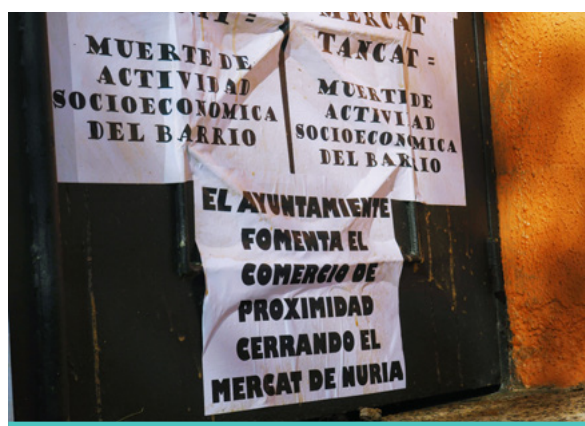 TANCAT =
MUERTE DE
ACTIVIDAD
SOCIOECONOMICA
DEL BARRIO
MERCAT
TANCAT =
MUERTE DE
ACTIVIDAD
SOCIOECONOMICA
DEL BARRIO
EL AYUNTAMIENTE
FOMENTA EL
COMERCIO DE
PROXIMIDAD
CERRANDO EL
MERCAT DE NURIA